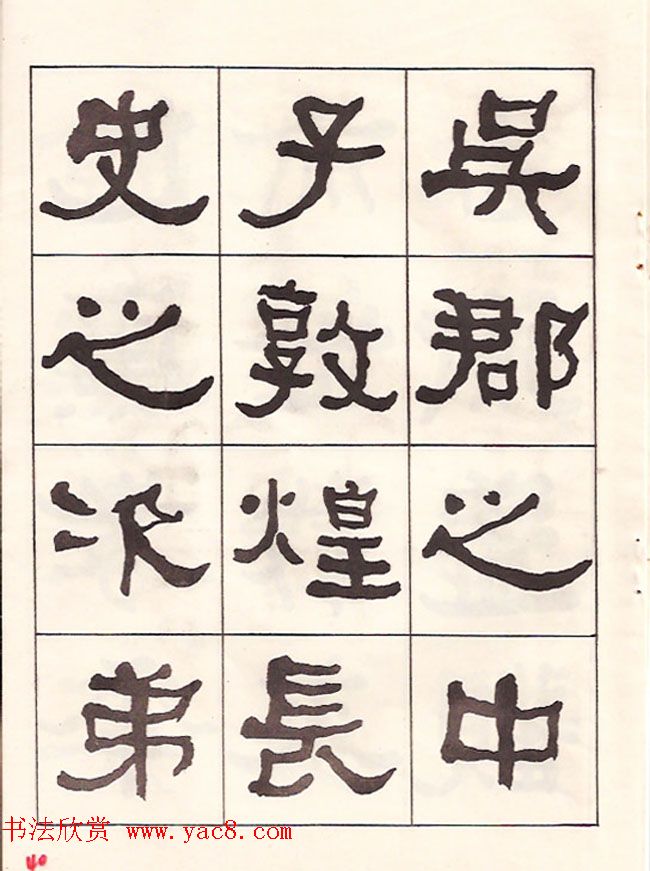 吳郡之中
子敦煌長
史之次弟
书法欣赏 www.yac8.com
40